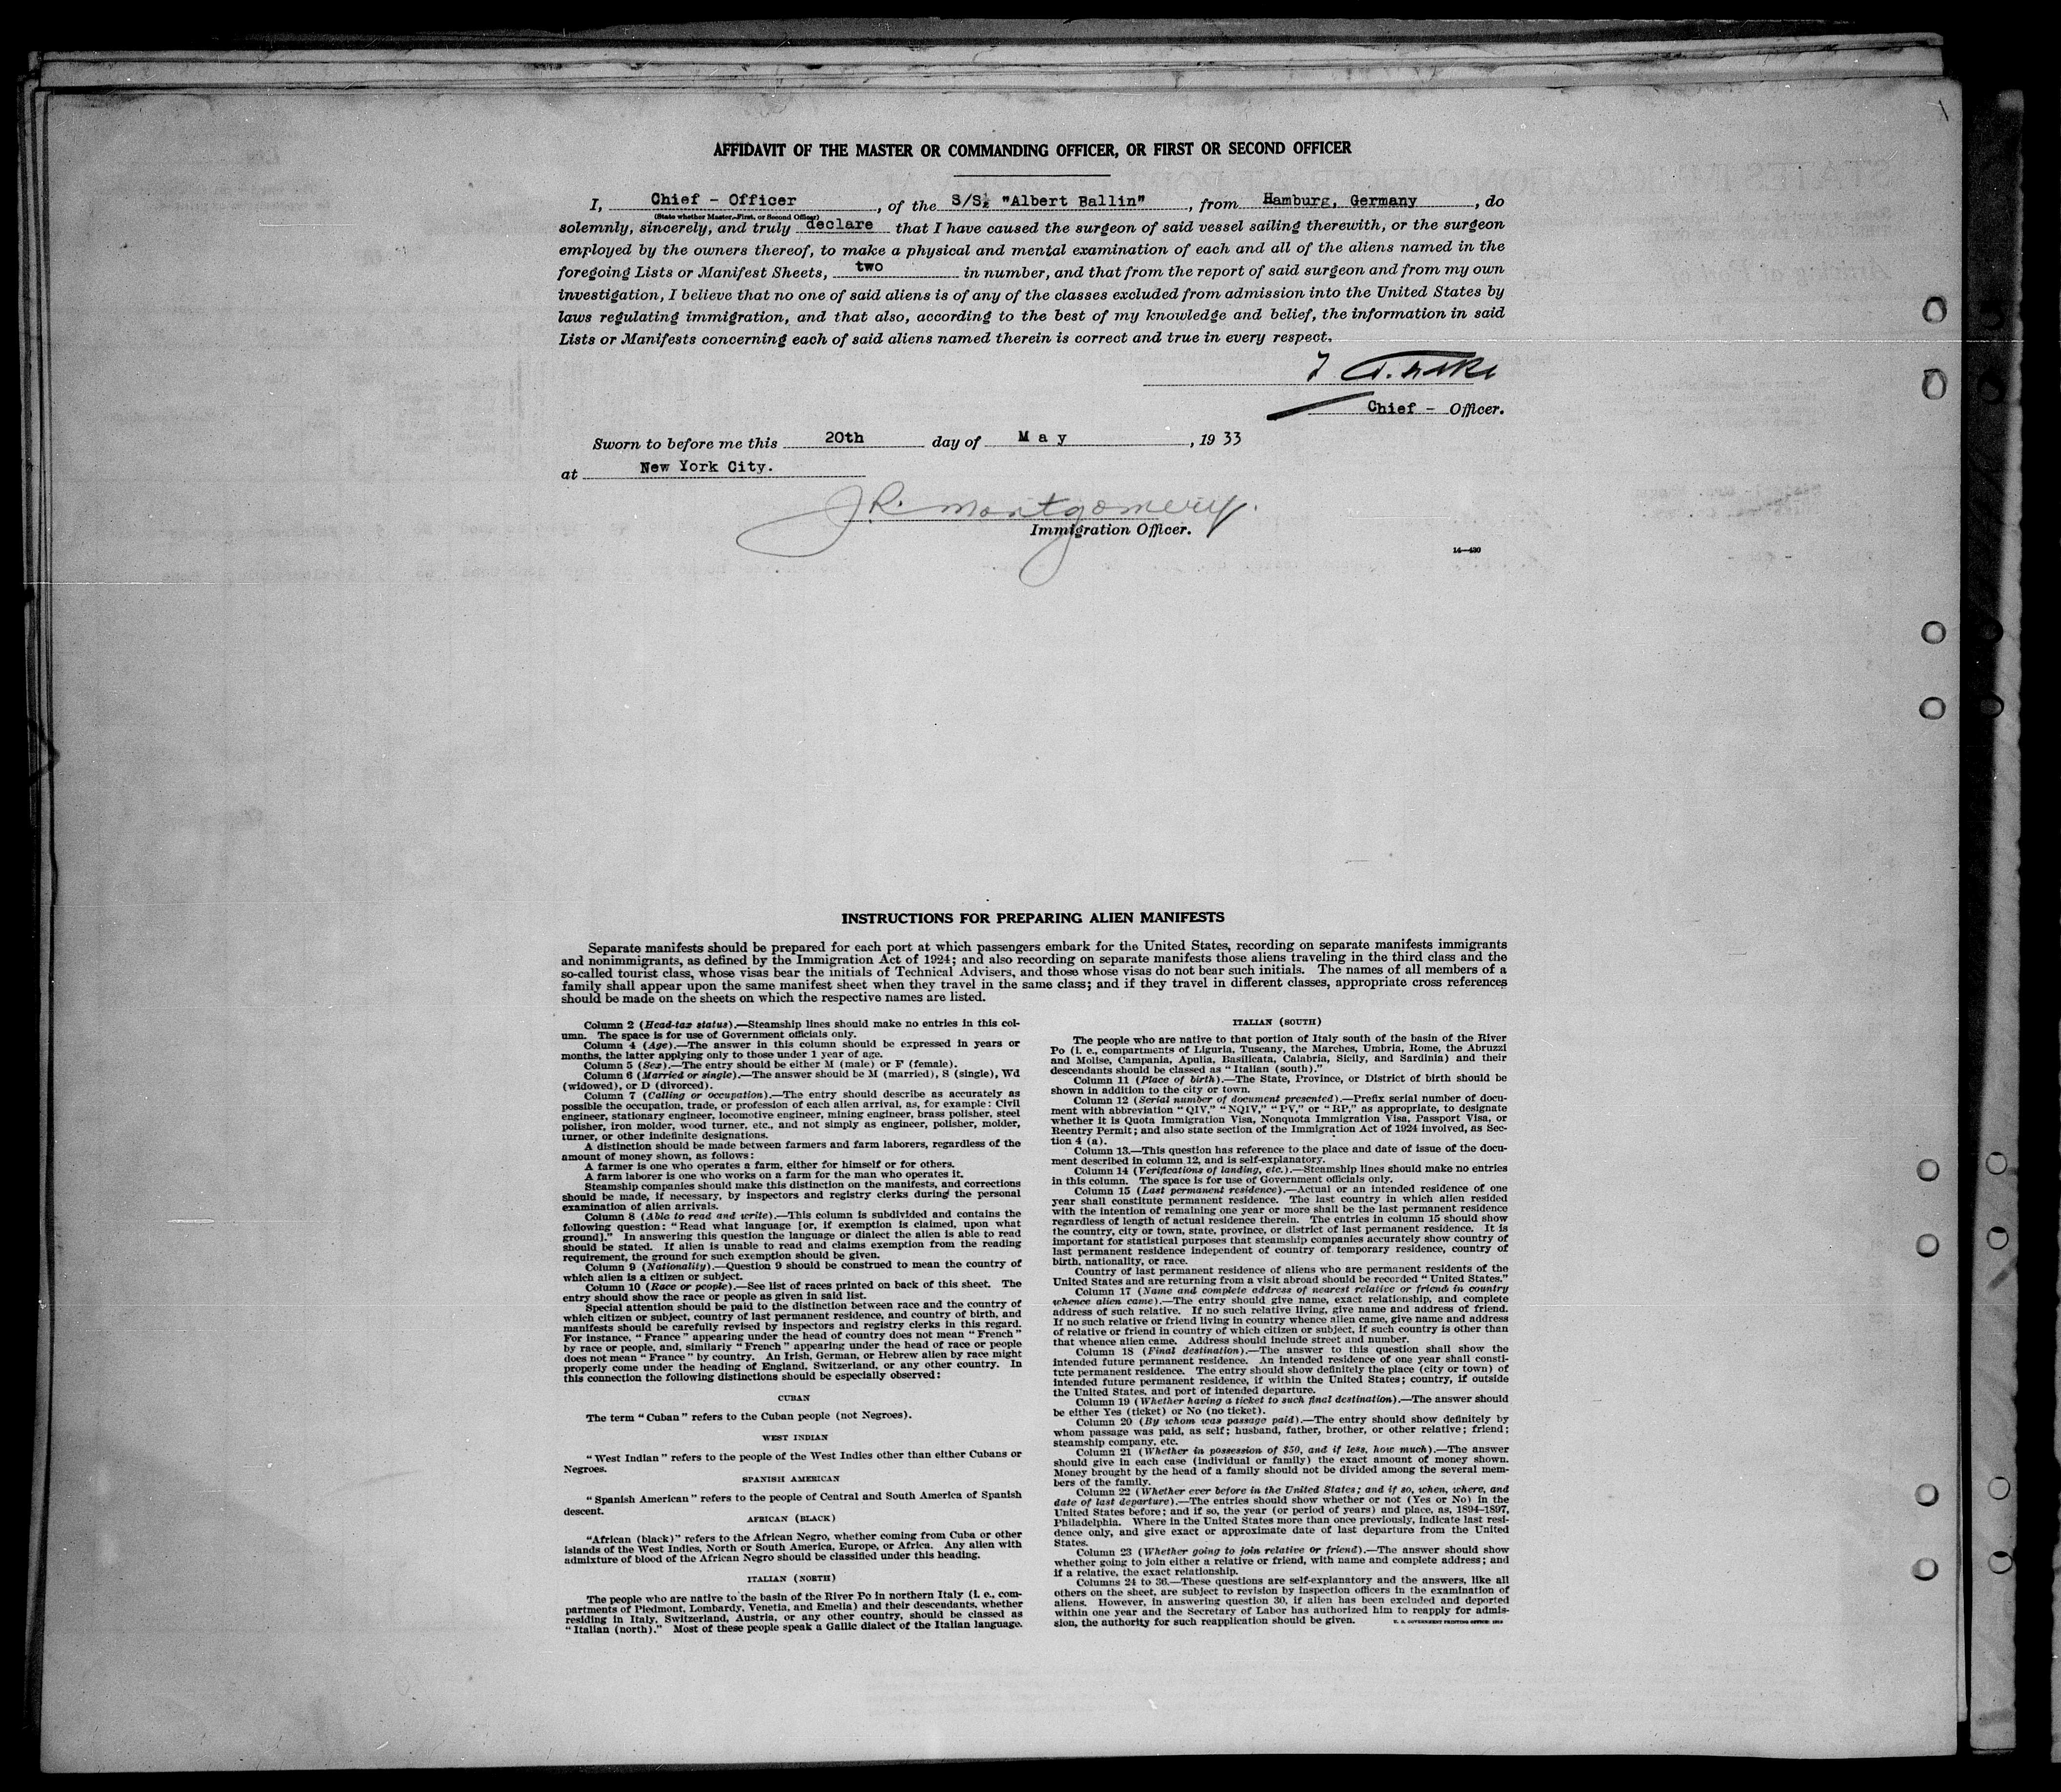 AFFIDAVIT OF THE MASTER OR COMMANDING OFFICER, OR FIRST OR SECOND OFFICER
I, Chief - Officer, of the S/S. "Albert Ballin", from Hamburg, Germany, do
(State whether Master, First, or Second Officer)
solemnly, sincerely, and truly declare that I have caused the surgeon of said vessel sailing therewith, or the surgeon
employed by the owners thereof, to make a physical and mental examination of each and all of the aliens named in the
foregoing Lists or Manifest Sheets, two in number, and that from the report of said surgeon and from my own
investigation, I believe that no one of said aliens is of any of the classes excluded from admission into the United States by
laws regulating immigration, and that also, according to the best of my knowledge and belief, the information in said
Lists or Manifests concerning each of said aliens named therein is correct and true in every respect.
Chief - Officer.
Sworn to before me this 20th day of May, 1933
at New York City.
J.R. Montgomery.
Immigration Officer.
14—430
INSTRUCTIONS FOR PREPARING ALIEN MANIFESTS
Separate manifests should be prepared for each port at which passengers embark for the United States, recording on separate manifests immigrants
and nonimmigrants, as defined by the Immigration Act of 1924; and also recording on separate manifests those aliens traveling in the third class and the
so-called tourist class, whose visas bear the initials of Technical Advisers, and those whose visas do not bear such initials. The names of all members of a
family shall appear upon the same manifest sheet when they travel in the same class; and if they travel in different classes, appropriate cross references
should be made on the sheets on which the respective names are listed.
Column 2 (Head-tax status).—Steamship lines should make no entries in this col-
umn. The space is for use of Government officials only.
Column 4 (Age).—The answer in this column should be expressed in years or
months, the latter applying only to those under 1 year of age.
Column 5 (Sex).—The entry should be either M (male) or F (female).
Column 6 (Married or single).—The answer should be M (married), S (single), Wd
(widowed), or D (divorced).
Column 7 (Calling or occupation).—The entry should describe as accurately as
possible the occupation, trade, or profession of each alien arrival, as, for example: Civil
engineer, stationary engineer, locomotive engineer, mining engineer, brass polisher, steel
polisher, iron molder, wood turner, etc., and not simply as engineer, polisher, molder,
turner, or other indefinite designations.
A distinction should be made between farmers and farm laborers, regardless of the
amount of money shown, as follows:
A farmer is one who operates a farm, either for himself or for others.
A farm laborer is one who works on a farm for the man who operates it.
Steamship companies should make this distinction on the manifests, and corrections
should be made, if necessary, by inspectors and registry clerks during the personal
examination of alien arrivals.
Column 8 (Able to read and write).—This column is subdivided and contains the
following question: "Read what language [or, if exemption is claimed, upon what
ground]." In answering this question the language or dialect the alien is able to read
should be stated. If alien is unable to read and claims exemption from the reading
requirement, the ground for such exemption should be given.
Column 9 (Nationality).—Question 9 should be construed to mean the country of
which alien is a citizen or subject.
Column 10 (Race or people).—See list of races printed on back of this sheet. The
entry should show the race or people as given in said list.
Special attention should be paid to the distinction between race and the country of
which citizen or subject, country of last permanent residence, and country of birth, and
manifests should be carefully revised by inspectors and registry clerks in this regard.
For instance, "France" appearing under the head of country does not mean "French"
by race or people, and, similarly "French" appearing under the head of race or people
does not mean "France" by country. An Irish, German, or Hebrew alien by race might
properly come under the heading of England, Switzerland, or any other country. In
this connection the following distinctions should be especially observed:
CUBAN
The term "Cuban" refers to the Cuban people (not Negroes).
WEST INDIAN
"West Indian" refers to the people of the West Indies other than either Cubans or
Negroes.
SPANISH AMERICAN
"Spanish American" refers to the people of Central and South America of Spanish
descent.
AFRICAN (BLACK)
"African (black)" refers to the African Negro, whether coming from Cuba or other
islands of the West Indies, North or South America, Europe, or Africa. Any alien with
admixture of blood of the African Negro should be classified under this heading.
ITALIAN (NORTH)
The people who are native to the basin of the River Po in northern Italy (i. e., com-
partments of Piedmont, Lombardy, Venetia, and Emelia) and their descendants, whether
residing in Italy, Switzerland, Austria, or any other country, should be classed as
"Italian (north)." Most of these people speak a Gallic dialect of the Italian language.
ITALIAN (SOUTH)
The people who are native to that portion of Italy south of the basin of the River
Po (i. e., compartments of Liguria, Tuscany, the Marches, Umbria, Rome, the Abruzzi
and Molise, Campania, Apulia, Basilicata, Calabria, Sicily, and Sardinia) and their
descendants should be classed as "Italian (south)."
Column 11 (Place of birth).—The State, Province, or District of birth should be
shown in addition to the city or town.
Column 12 (Serial number of document presented).—Prefix serial number of docu-
ment with abbreviation "QIV," "NQIV," "PV," or "RP," as appropriate, to designate
whether it is Quota Immigration Visa, Nonquota Immigration Visa, Passport Visa, or
Reentry Permit; and also state section of the Immigration Act of 1924 involved, as Sec-
tion 4 (a).
Column 13.—This question has reference to the place and date of issue of the docu-
ment described in column 12, and is self-explanatory.
Column 14 (Verifications of landing, etc.).—Steamship lines should make no entries
in this column. The space is for use of Government officials only.
Column 15 (Last permanent residence).—Actual or an intended residence of one
year shall constitute permanent residence. The last country in which alien resided
with the intention of remaining one year or more shall be the last permanent residence
regardless of length of actual residence therein. The entries in column 15 should show
the country, city or town, state, province, or district of last permanent residence. It is
important for statistical purposes that steamship companies accurately show country of
last permanent residence independent of country of temporary residence, country of
birth, nationality, or race.
Country of last permanent residence of aliens who are permanent residents of the
United States and are returning from a visit abroad should be recorded "United States."
Column 17 (Name and complete address of nearest relative or friend in country
whence alien came).—The entry should give name, exact relationship, and complete
address of such relative. If no such relative living, give name and address of friend.
If no such relative or friend living in country whence alien came, give name and address
of relative or friend in country of which citizen or subject, if such country is other than
that whence alien came. Address should include street and number.
Column 18 (Final destination).—The answer to this question shall show the
intended future permanent residence. An intended residence of one year shall consti-
tute permanent residence. The entry should show definitely the place (city or town) of
intended future permanent residence, if within the United States; country, if outside
the United States, and port of intended departure.
Column 19 (Whether having a ticket to such final destination).—The answer should
be either Yes (ticket) or No (no ticket).
Column 20 (By whom was passage paid).—The entry should show definitely by
whom passage was paid, as self; husband, father, brother, or other relative; friend;
steamship company, etc.
Column 21 (Whether in possession of $50, and if less, how much).—The answer
should give in each case (individual or family) the exact amount of money shown.
Money brought by the head of a family should not be divided among the several mem-
bers of the family.
Column 22 (Whether ever before in the United States; and if so, when, where, and
date of last departure).—The entries should show whether or not (Yes or No) in the
United States before; and if so, the year (or period of years) and place, as, 1894–1897,
Philadelphia. Where in the United States more than once previously, indicate last resi-
dence only, and give exact or approximate date of last departure from the United
States.
Column 23 (Whether going to join relative or friend).—The answer should show
whether going to join either a relative or friend, with name and complete address; and
if a relative, the exact relationship.
Columns 24 to 36.—These questions are self-explanatory and the answers, like all
others on the sheet, are subject to revision by inspection officers in the examination of
aliens. However, in answering question 30, if alien has been excluded and deported
within one year and the Secretary of Labor has authorized him to reapply for admis-
sion, the authority for such reapplication should be given. U. S. GOVERNMENT PRINTING OFFICE